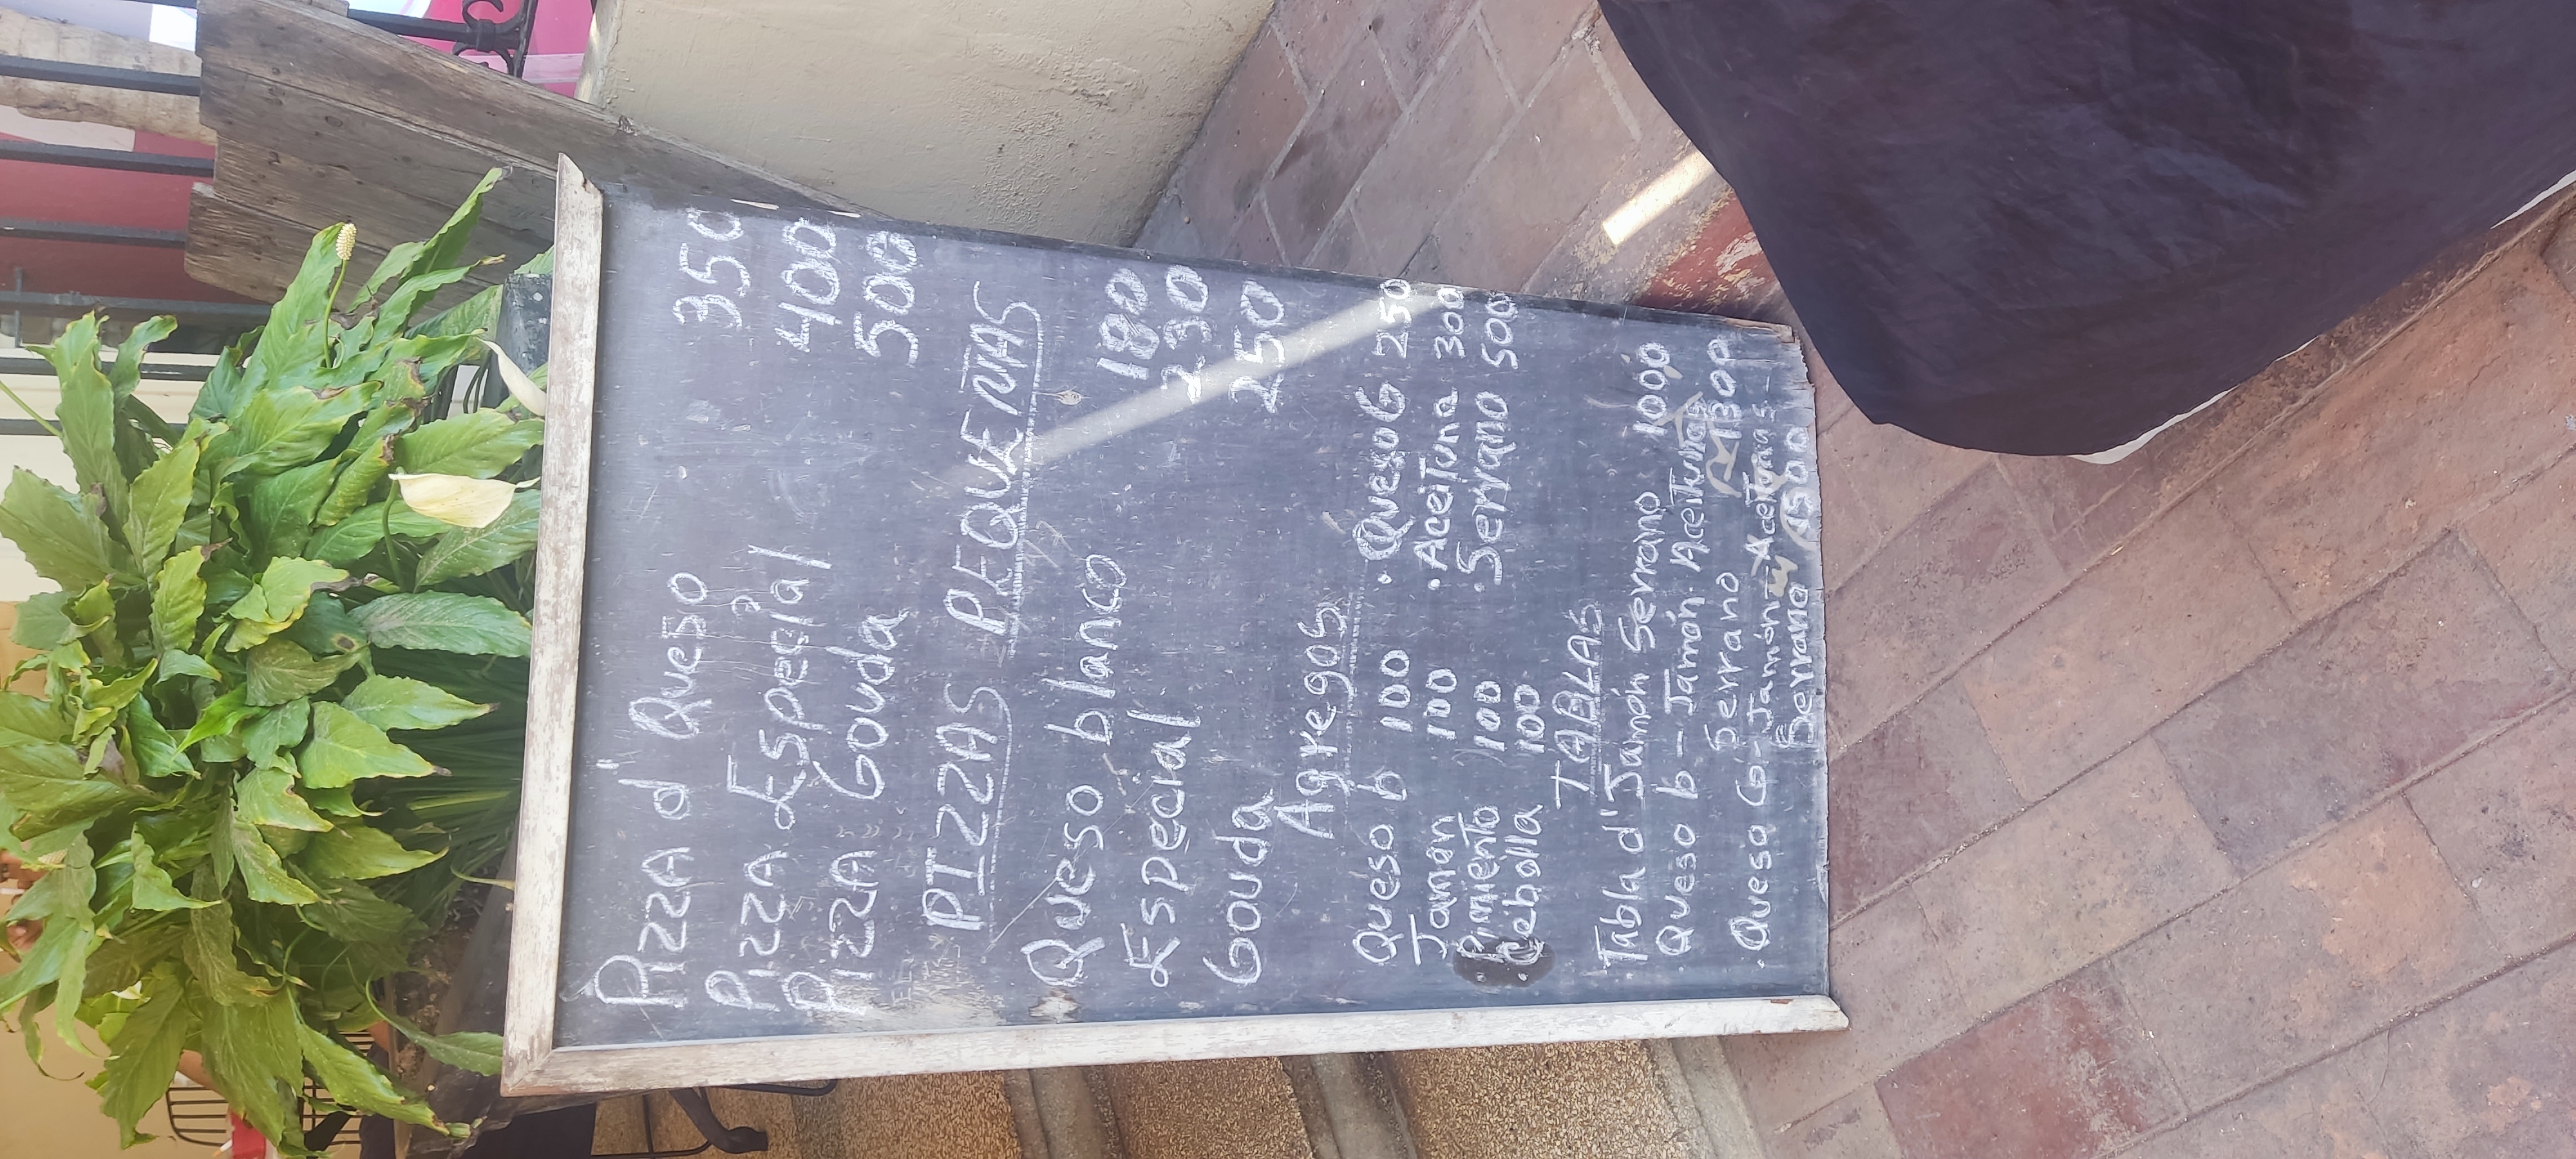 Pizza d' Queso 350
Pizza Especial 400
Pizza Gouda 500
PIZZAS PEQUEÑAS
Queso blanco 180
Especial 230
Gouda 250
Agregos
Queso b 100 · Queso G 250
Jamón 100 · Aceituna 300
· Pimiento 100 · Serrano 500
· Cebolla 100
TABLAS
· Tabla d' Jamón Serrano 1000
· Queso b - Jamón - Aceitunas
Serrano 1300
· Queso G - Jamón - Aceitunas -
Serrano 1500